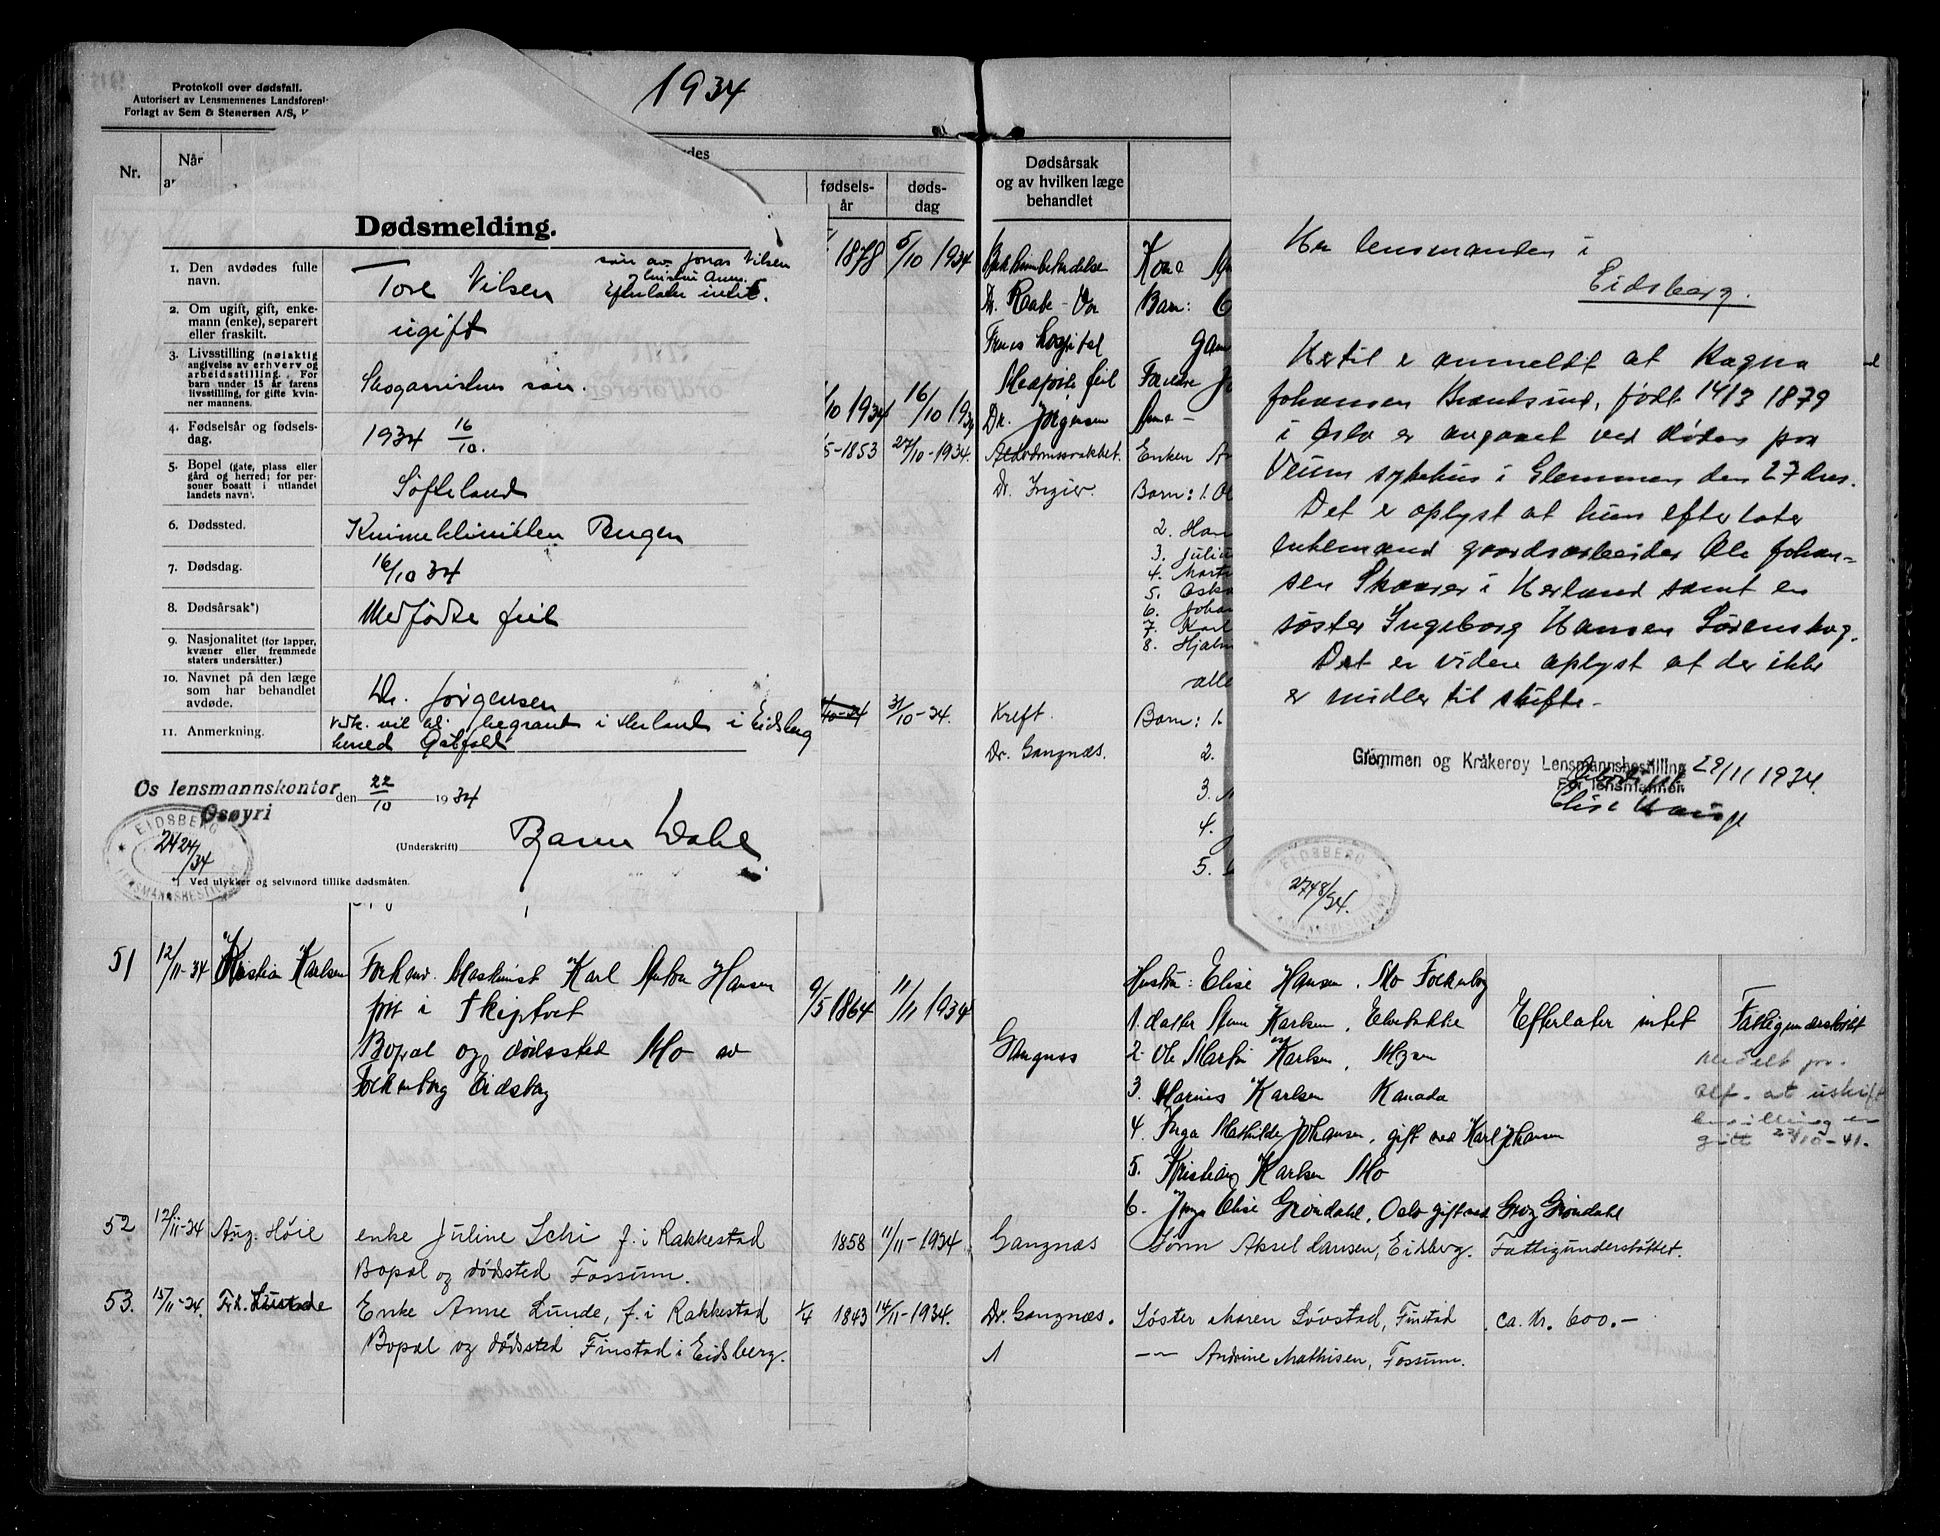 1934
Protokoll over dødsfall.
Autorisert av Lensmennenes Landsforen
Forlagt av Sem & Stenersen A/S,
Nr.
Når
fødsels-
år
døds-
dag
Dødsårsak
og av hvilken læge
behandlet
Dødsmelding.
1. Den avdødes fulle
navn.
Tore Nilsen
søn av Jonas Nilsen
Efterlater intet.
2. Om ugift, gift, enke-
mann (enke), separert
eller fraskilt.
ugift
3. Livsstilling (nøiaktig
angivelse av erhverv og
arbeidsstilling. For
barn under 15 år farens
livsstilling, for gifte kvin-
ner mannens.
søn.
4. Fødselsår og fødsels-
dag.
1934 16/10.
5. Bopel (gate, plass eller
gård og herred; for per-
soner bosatt i utlandet
landets navn).
Søfteland
6. Dødssted.
Kvinneklinikken Bergen
7. Dødsdag.
16/10 34
8. Dødsårsak*)
Medfødte feil
9. Nasjonalitet (for lapper,
kvæner eller fremmede
staters undersåtter.)
10. Navnet på den læge
som har behandlet
avdøde.
Dr. Jørgensen
11. Anmerkning.
vil bli begravet i Herland i Eidsberg
herred Østfold
Os lensmannskontor den 22/10 1934
Osøyri
(Underskrift) Bjarne Dahl
EIDSBERG
LENSMANNSBESTILLING
2424/34
*) Ved ulykker og selvmord tillike dødsmåten.
1878 5/10 1934
Dr. Raabe
hospital
Kone
Barn:
/10 1934 16/10 1934
Medfødte feil
Dr. Jørgensen
Foreldre
-1853 27/10-1934.
Alderdomssvakhet.
Dr. Ingier.
Enken
Barn: 1.
2.
3. Juliu
4. Marti
5. Oska
6. Johan
7. Karl
8. Hjalm
alle
31/10-34.
Kreft.
Dr. Gangnæs.
Barn: 1.
2.
3.
4.
5.
Hr lensmanden i
Eidsberg.
Hertil er anmeldt at Ragna
Johansen Brentsund, født 14/3 1879
i Oslo er avgaaet ved døden paa
Veum sykehus i Glemmen den 27 dns.
Det er oplyst at hun efterlater
enkemand gaardsarbeider Ole Johan-
sen Skaarer i Herland samt en
søster Ingeborg Hansen Lørenskog.
Det er videre oplyst at der ikke
er midler til skifte.
Glemmen og Kråkerøy Lensmannsbestilling 29/11 1934.
For lensmannen
EIDSBERG
LENSMANNSBESTILLING
2748/34.
51 12/11-34 Kristian Karlsen
Forhenv. Maskinist Karl Anton Hansen
født i Skiptvet
Bopæl og dødssted Mo av
Folkenborg Eidsberg
9/5 1864 11/11 1934
Gangnæs
Hustru: Elise Hansen. Mo Folkenborg
1. datter Karlsen,
2. Ole Martin Karlsen, Mysen
3. Marius Karlsen Kanada
4. Inga Mathilde Johansen, gift med Karl Johansen
5. Kristian Karlsen Mo
6. Elise Grøndahl, Oslo gift med Grøndahl
Efterlater intet
Fattigunderstøttet
Meddelt
at uskift
bevilling er
gitt 22/10-41.
52 12/11-34 Aug. Høie
enke Juline Schi f. i Rakkestad
Bopæl og dødsted Fossum.
1858 11/11-1934
Gangnæs
Sønn Aksel Hansen, Eidsberg.
Fattigunderstøttet.
53. 15/11-34. Frk.
Enke Anne Lunde, f. i Rakkestad
Bopæl og dødsted Finstad i Eidsberg.
1/4 1843 14/11-1934.
Dr. Gangnæs.
Søster Maren Løvstad, Finstad
— " — Andrine Mathisen, Fossum.
ca. kr. 600.-